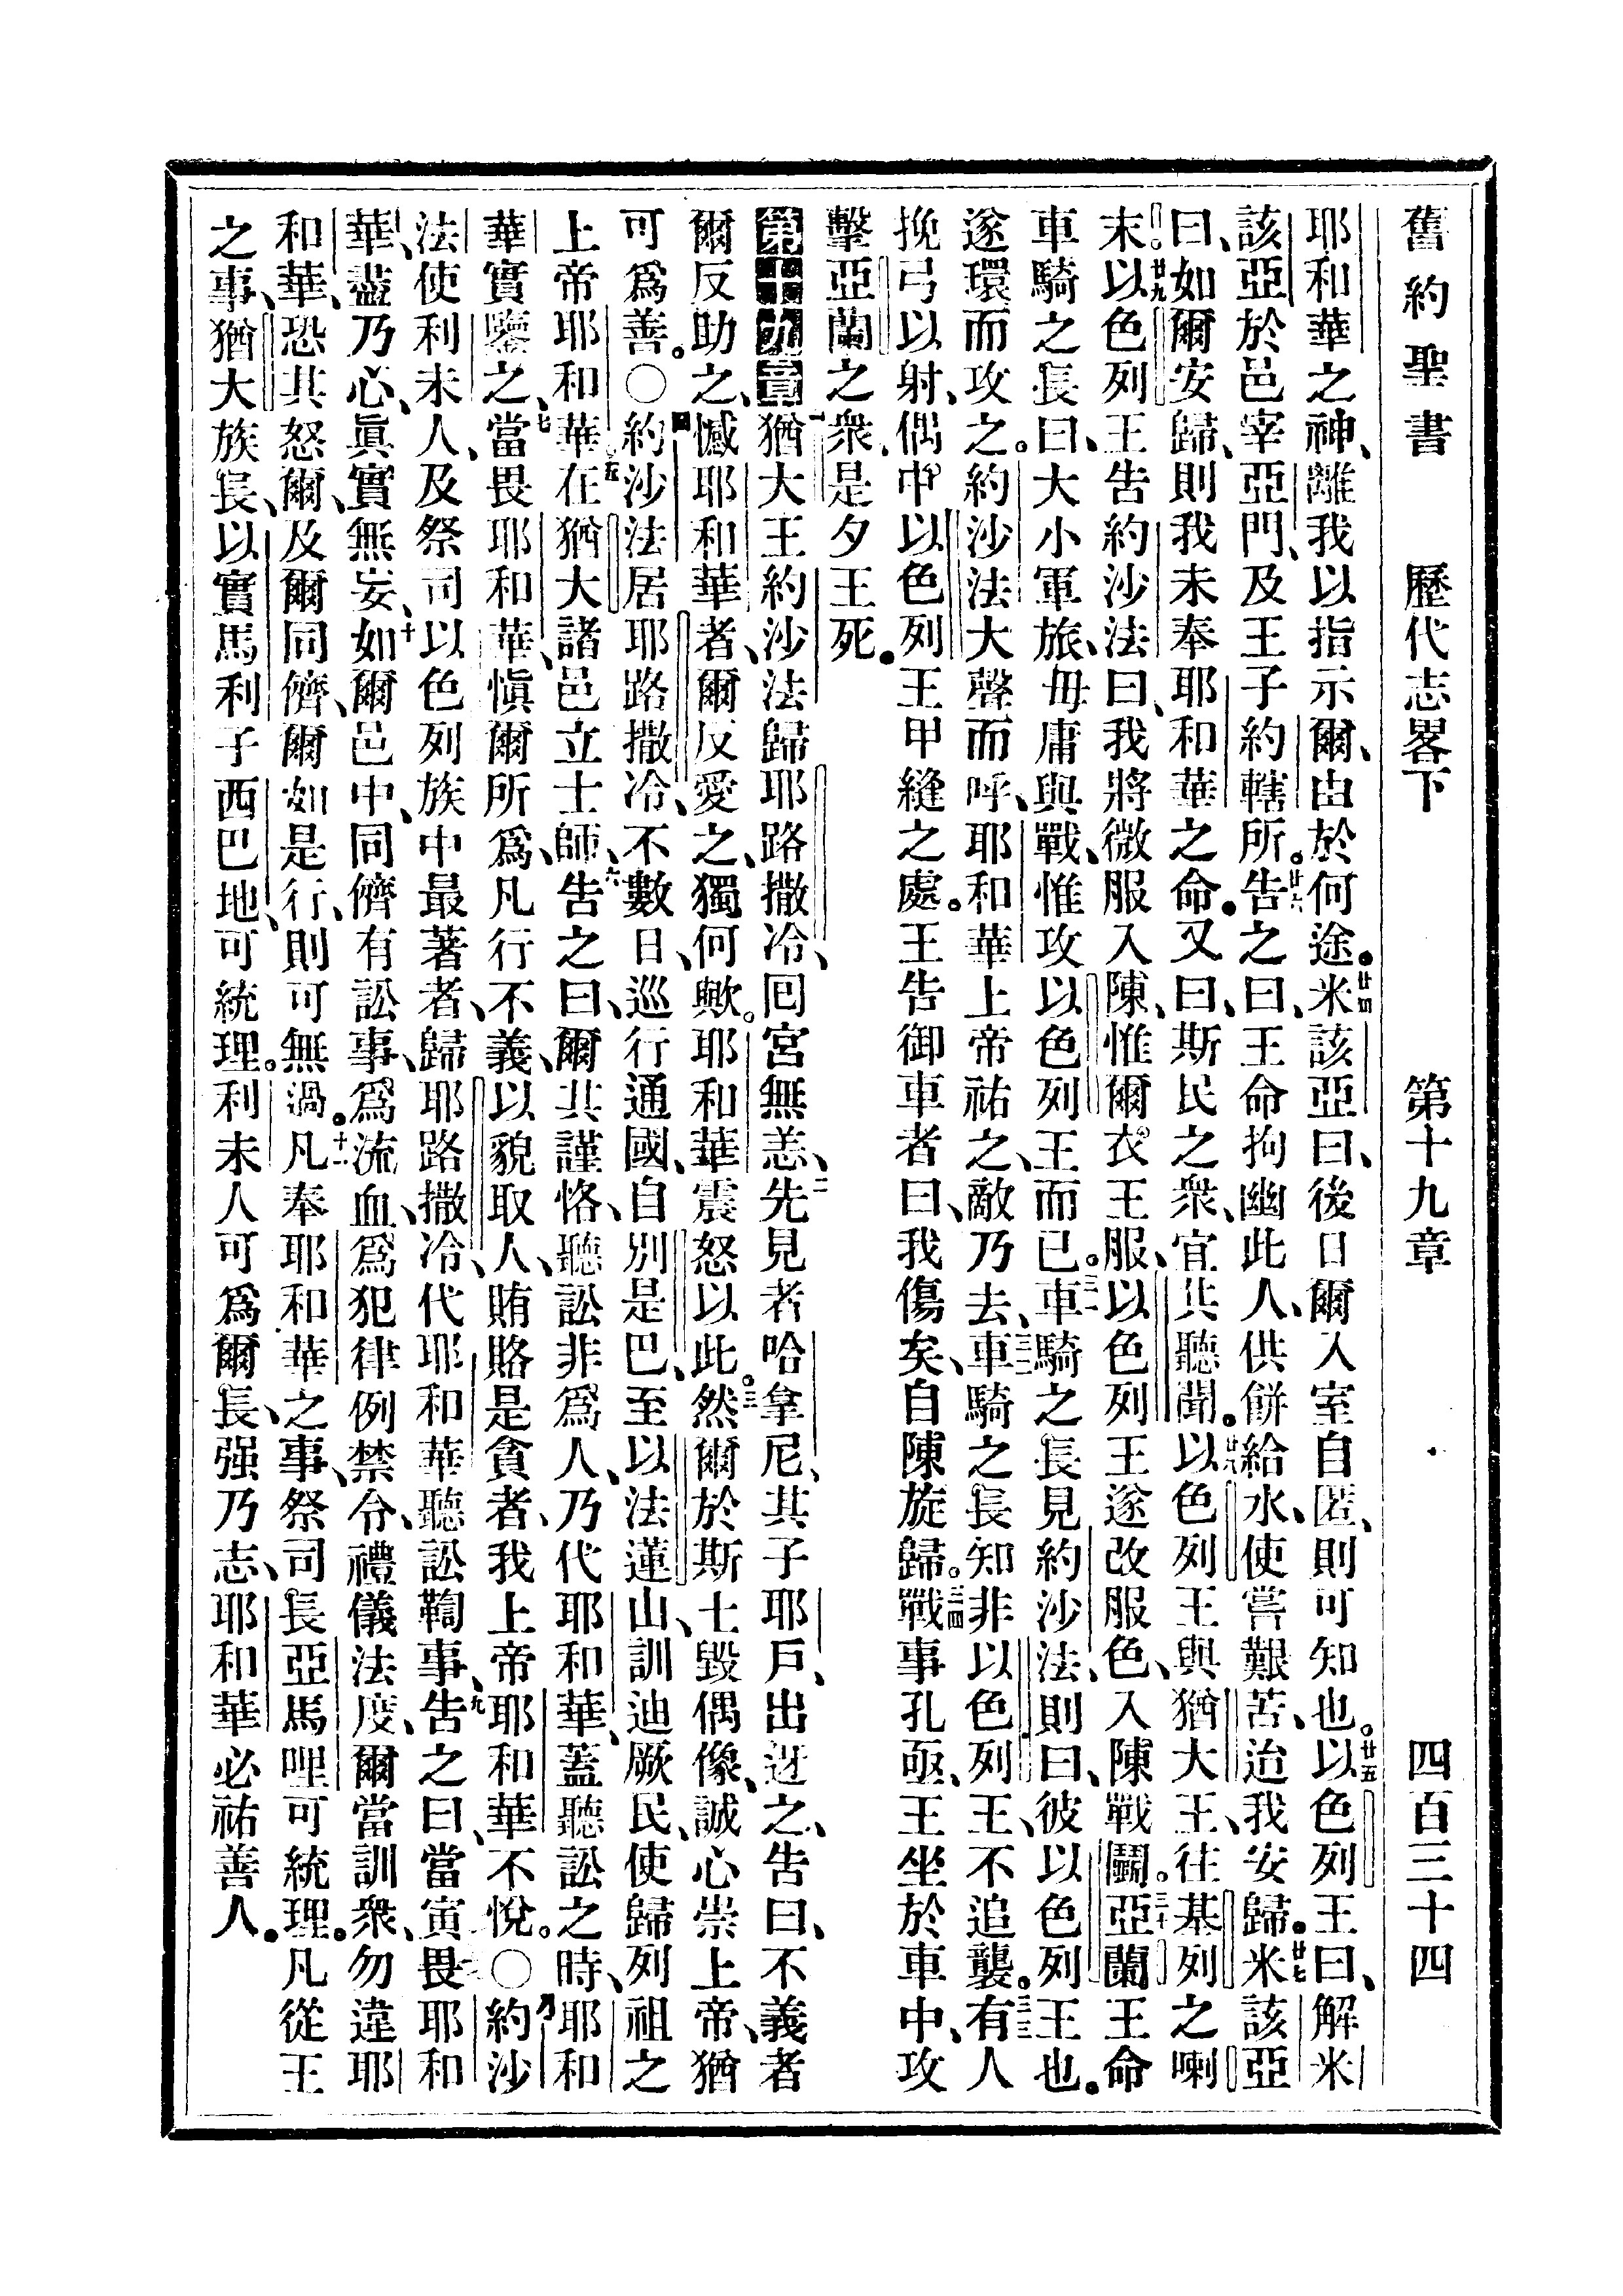 舊約聖書 歷代志畧下 第十九章 四百三十四
耶和華之神、離我以指示爾、由於何途。廿四米該亞曰、後日爾入室自匿、則可知也。廿五以色列王曰、解米
該亞於邑宰亞們、及王子約轄所。廿六告之曰、王命拘幽此人、供餅給水、使嘗艱苦、迨我安歸。廿七米該亞
曰、如爾安歸、則我未奉耶和華之命。又曰、斯民之衆、宜共聽聞。廿八以色列王與猶大王、往基列之喇
末。廿九以色列王告約沙法曰、我將微服入陳、惟爾衣王服、以色列王遂改服色、入陳戰鬭。三十亞蘭王命
車騎之長曰、大小軍旅、毋庸與戰、惟攻以色列王而已。三一車騎之長見約沙法、則曰、彼以色列王也。
遂環而攻之。約沙法大聲而呼、耶和華上帝祐之、敵乃去、三二車騎之長知非以色列王、不追襲。三三有人
挽弓以射、偶中以色列王甲縫之處。王告御車者曰、我傷矣、自陳旋歸。三四戰事孔亟、王坐於車中、攻
擊亞蘭之衆、是夕王死。
第十九章 一猶大王約沙法歸耶路撒冷、囘宮無恙、二先見者哈拿尼、其子耶戶、出迓之、告曰、不義者
爾反助之、憾耶和華者、爾反愛之、獨何歟。耶和華震怒以此。三然爾於斯土毀偶像、誠心崇上帝、猶
可爲善。〇四約沙法居耶路撒冷、不數日、巡行通國、自別是巴、至以法蓮山、訓迪厥民、使歸列祖之
上帝耶和華。五在猶大諸邑立士師、六告之曰、爾其謹恪、聽訟非爲人、乃代耶和華、蓋聽訟之時、耶和
華實鑒之、七當畏耶和華、愼爾所爲、凡行不義、以貌取人、賄賂是貪者、我上帝耶和華不悅。〇八約沙
法使利未人、及祭司以色列族中最著者、歸耶路撒冷、代耶和華聽訟鞫事、九告之曰、當寅畏耶和
華、盡乃心、眞實無妄、十如爾邑中、同儕有訟事、爲流血、爲犯律例禁令、禮儀法度、爾當訓衆、勿違耶
和華、恐其怒爾、及爾同儕、爾如是行、則可無過。十一凡奉耶和華之事、祭司長亞馬哩可統理。凡從王
之事、猶大族長、以實馬利子西巴地、可統理。利未人可爲爾長、强乃志、耶和華必祐善人。